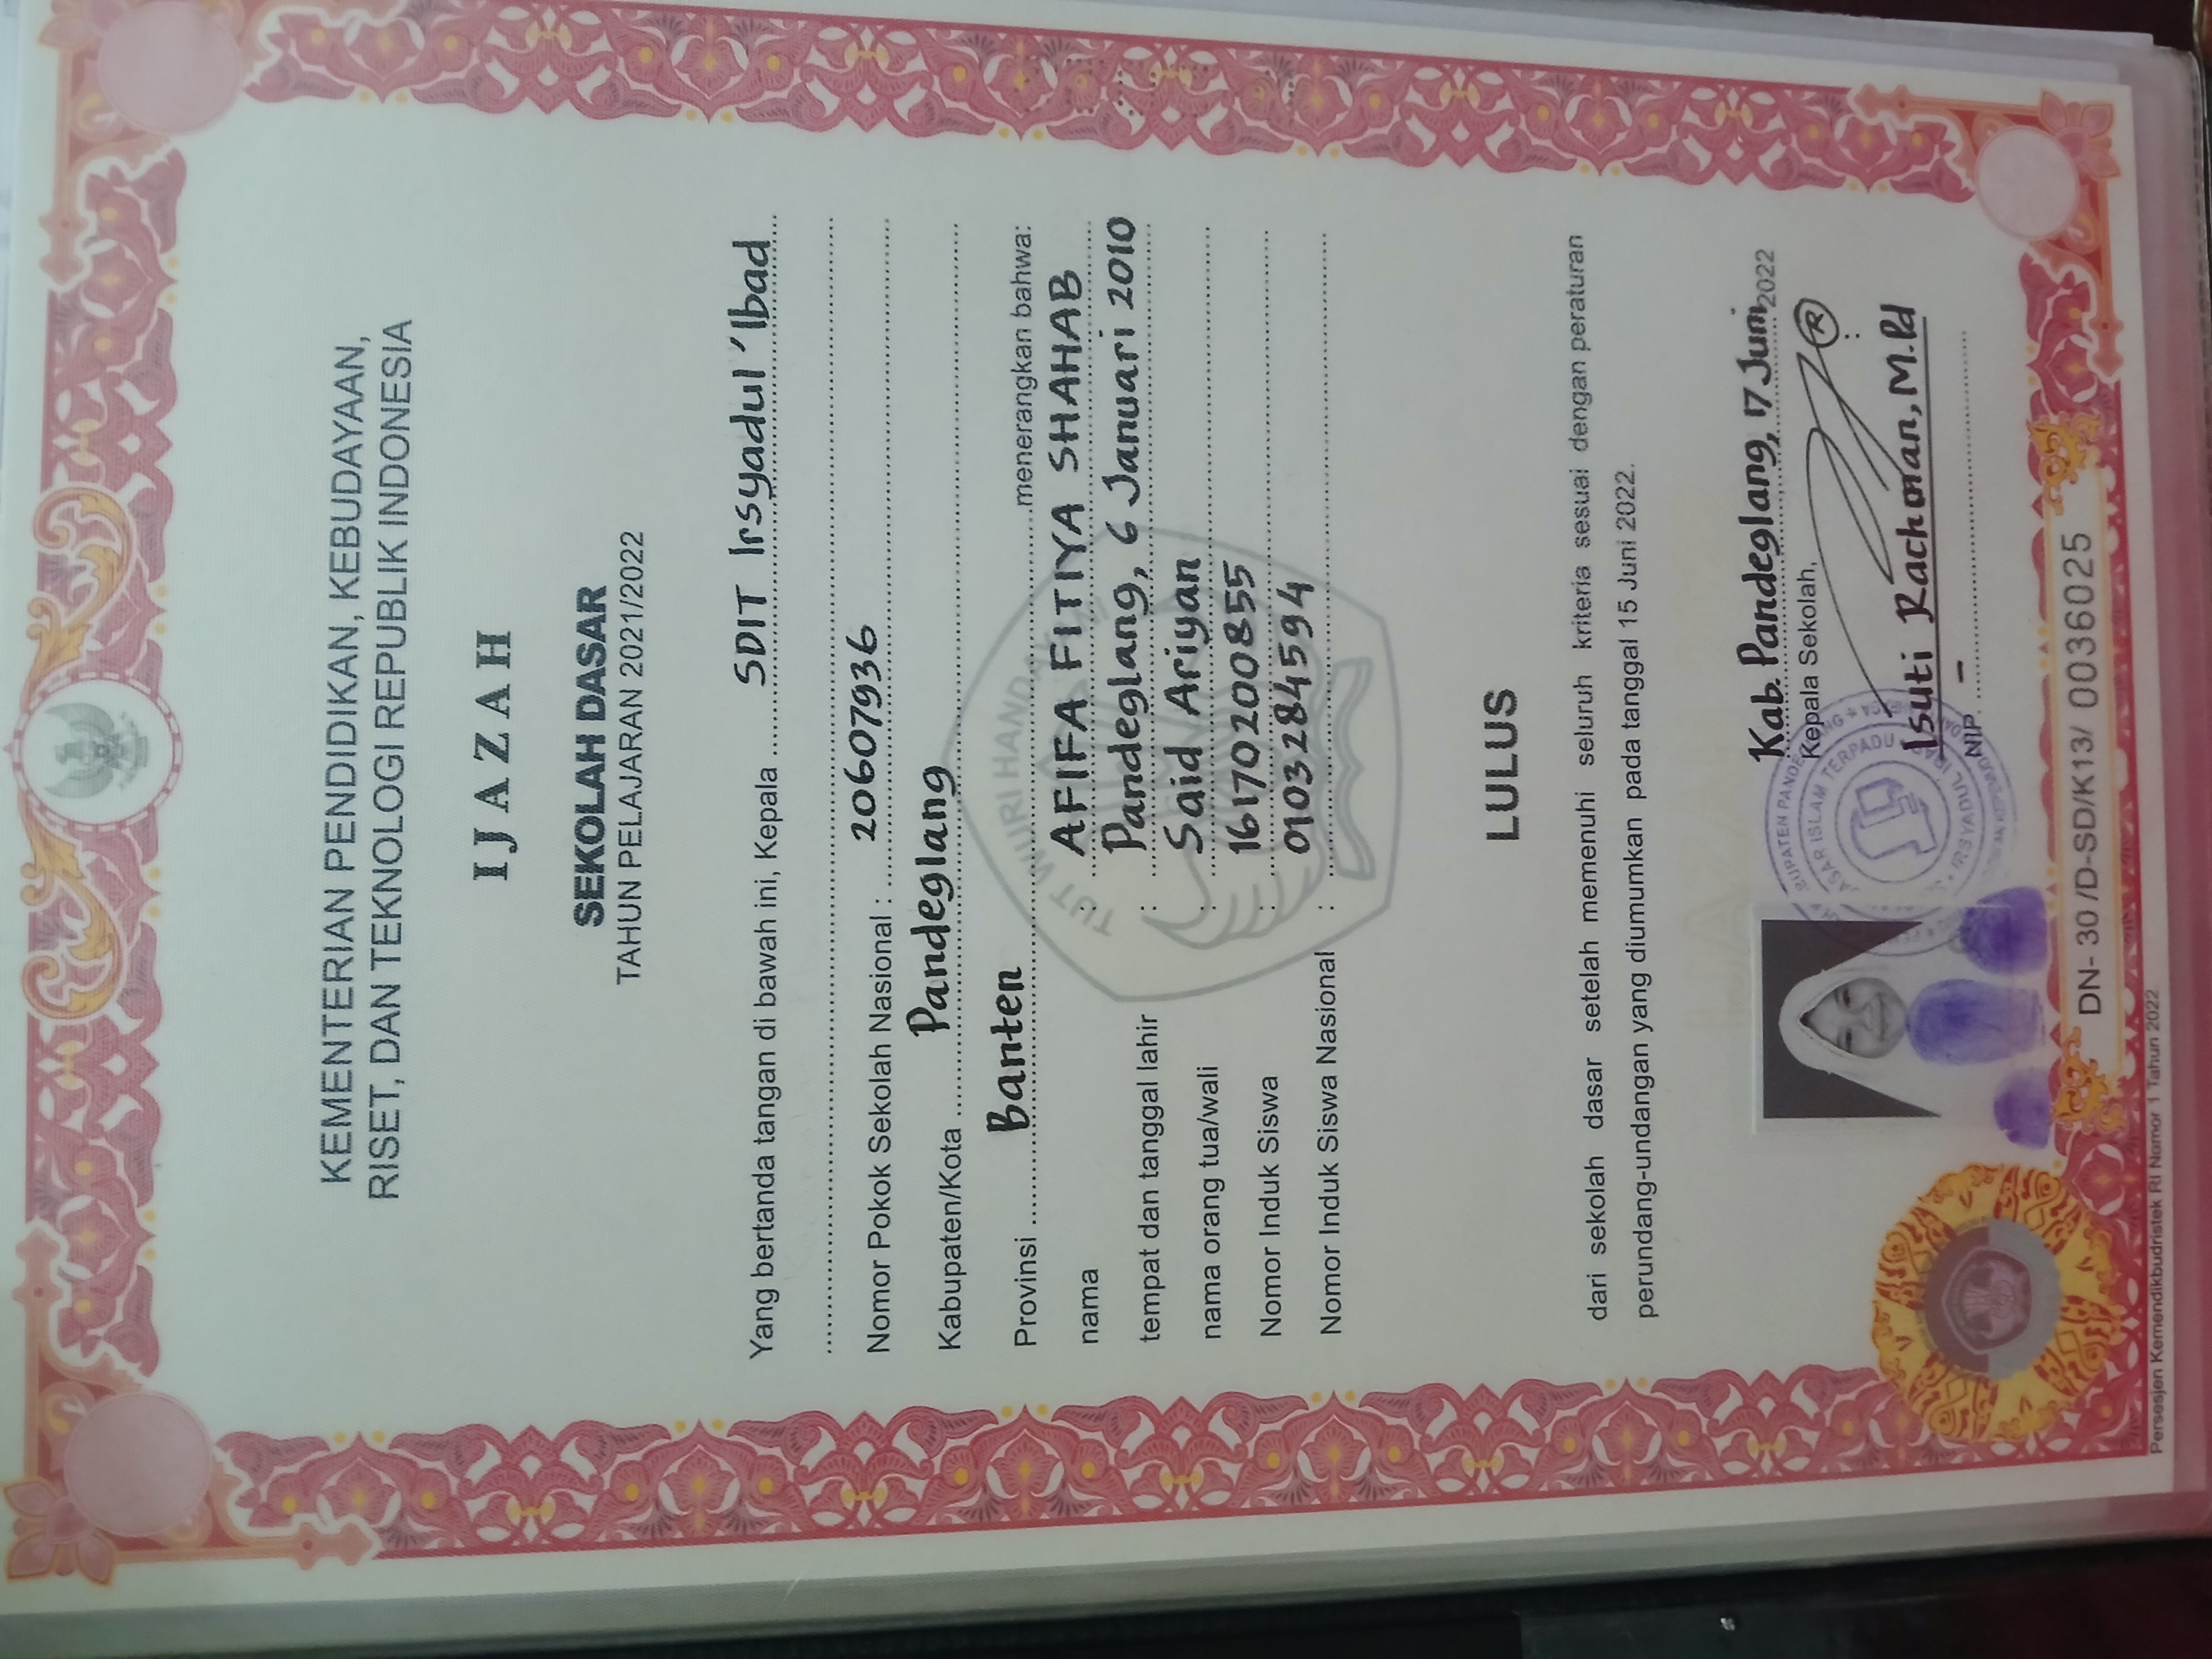 KEMENTERIAN PENDIDIKAN, KEBUDAYAAN,
RISET, DAN TEKNOLOGI REPUBLIK INDONESIA
IJAZAH
SEKOLAH DASAR
TAHUN PELAJARAN 2021/2022
Yang bertanda tangan di bawah ini, Kepala SDIT Irsyadul 'Ibad
Nomor Pokok Sekolah Nasional : 20607936
Kabupaten/Kota Pandeglang
Provinsi Banten menerangkan bahwa:
TUT WURI HANDAYANI
nama : AFIFA FITIYA SHAHAB
tempat dan tanggal lahir : Pandeglang, 6 Januari 2010
nama orang tua/wali : Said Ariyan
Nomor Induk Siswa : 16170200855
Nomor Induk Siswa Nasional : 0103284594
LULUS
dari sekolah dasar setelah memenuhi seluruh kriteria sesuai dengan peraturan
perundang-undangan yang diumumkan pada tanggal 15 Juni 2022.
Kab. Pandeglang, 17 Juni 2022
Kepala Sekolah,
R
Isuti Rachman, M.Pd
NIP. -
DASAR ISLAM TERPADU
DN- 30 /D-SD/K13/ 0036025
Persesjen Kemendikbudristek RI Nomor 1 Tahun 2022